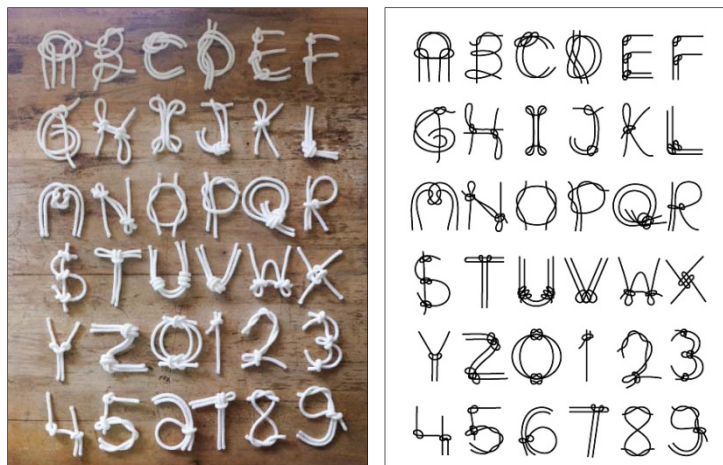 A B C D E F
G H I J K L
M N O P Q R
S T U V W X
Y Z 0 1 2 3
4 5 6 7 8 9
A B C D E F
G H I J K L
M N O P Q R
S T U V W X
Y Z 0 1 2 3
4 5 6 7 8 9